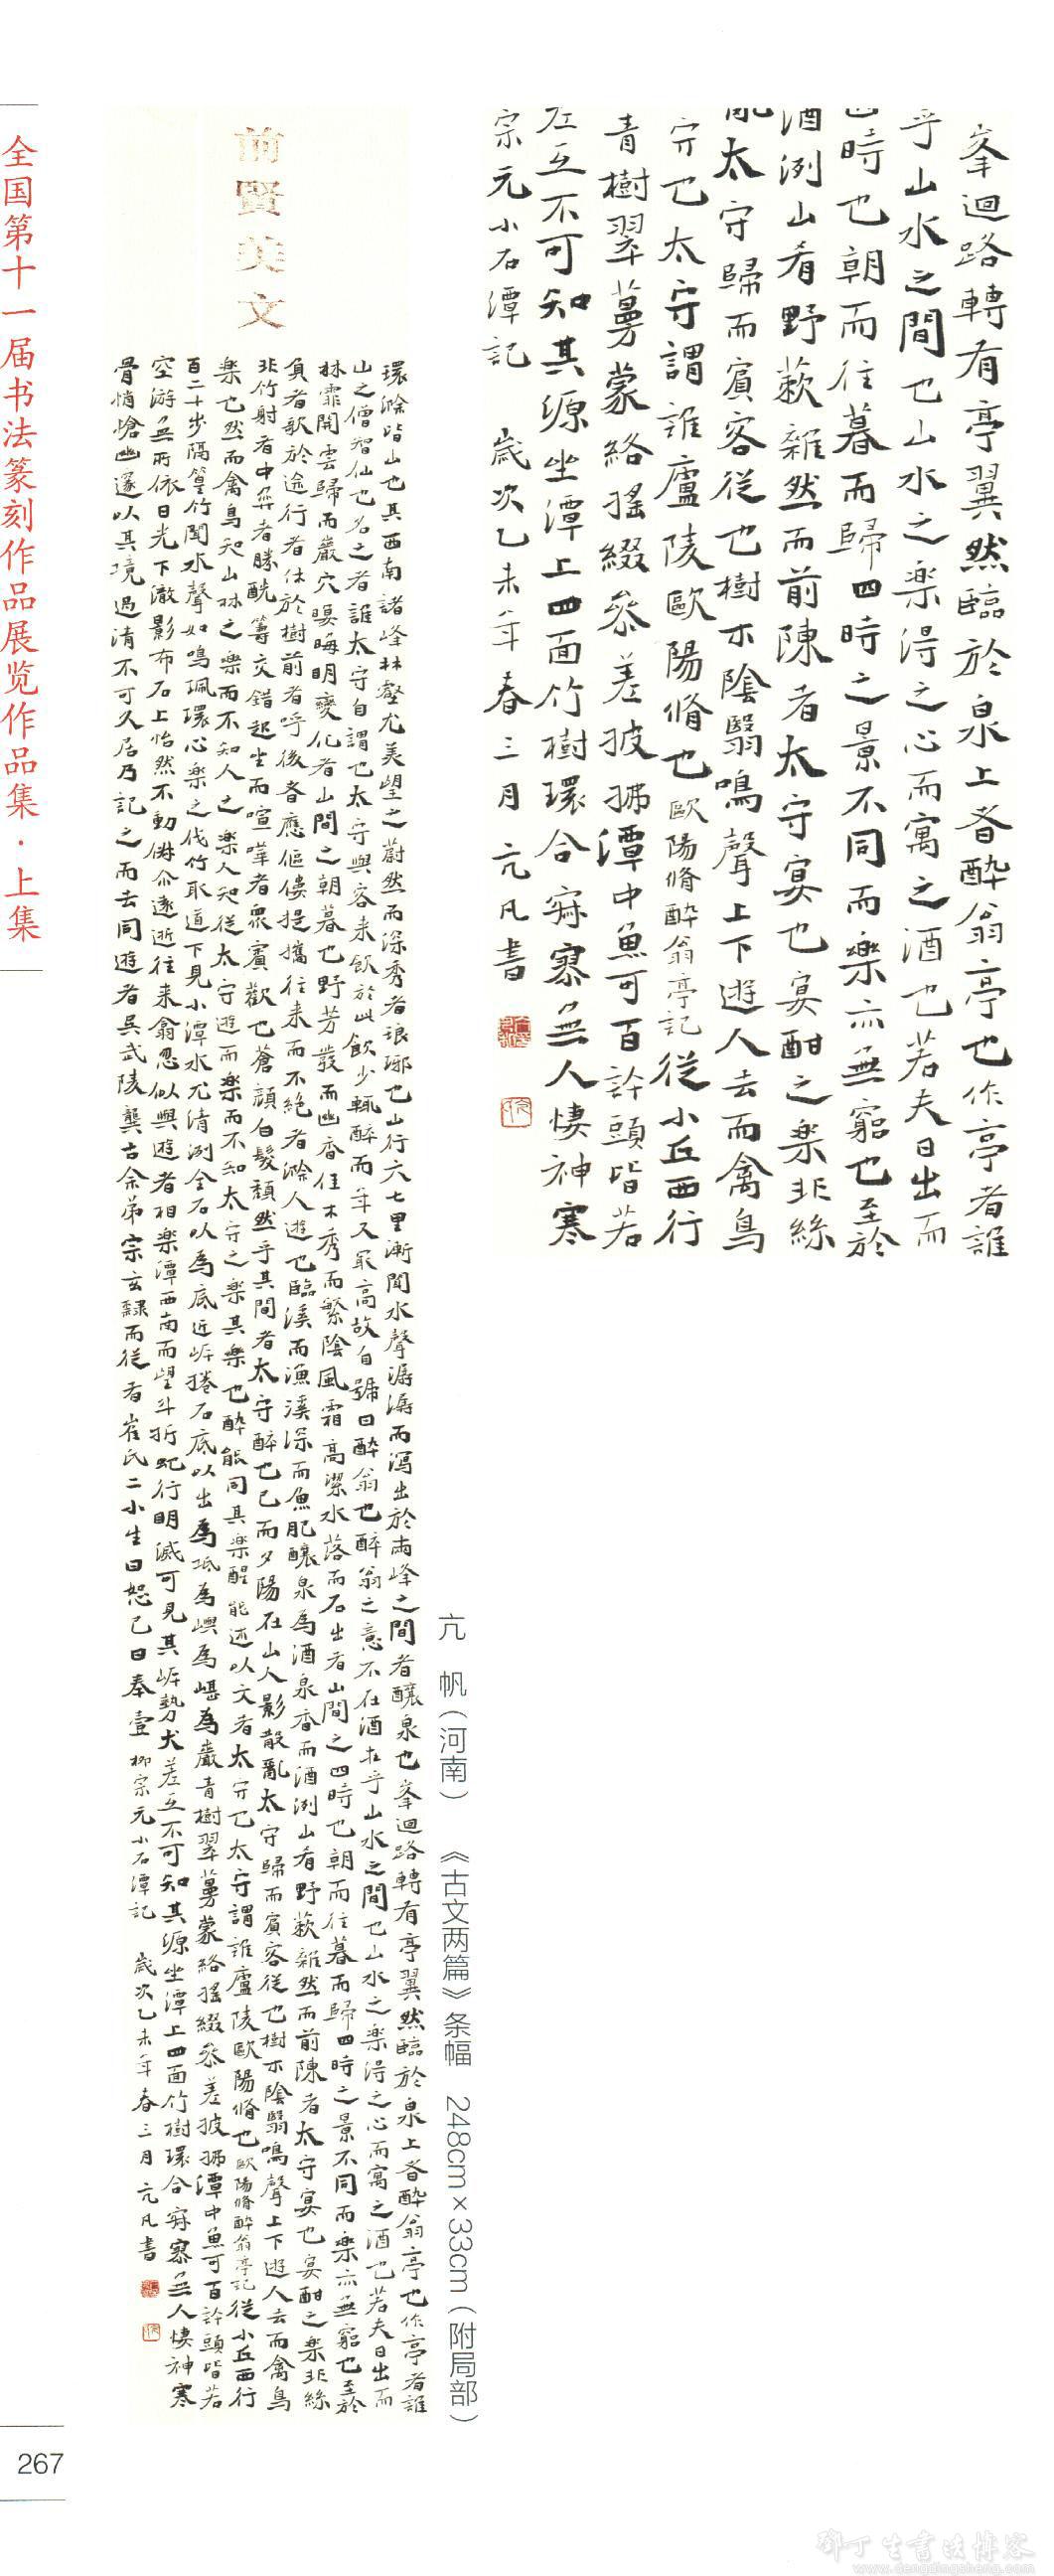 全国第十一届书法篆刻作品展览作品集·上集
峯迴路轉有亭翼然臨於泉上者醉翁亭也作亭者誰
乎山水之間也山水之樂得之心而寓之酒也若夫日出而
四時也朝而往暮而歸四時之景不同而樂亦無窮也至於
酒洌山肴野蔌雜然而前陳者太守宴也宴酣之樂非絲
亂太守歸而賓客從也樹木陰翳鳴聲上下遊人去而禽鳥
守也太守謂誰廬陵歐陽脩也歐陽脩醉翁亭記從小丘西行
青樹翠蔓蒙絡搖綴參差披拂潭中魚可百許頭皆若
差互不可知其源坐潭上四面竹樹環合寂寥無人悽神寒
宗元小石潭記 歲次乙未年春三月亢凡書
前賢美文
環滁皆山也其西南諸峰林壑尤美望之蔚然而深秀者琅琊也山行六七里漸聞水聲潺潺而瀉出於兩峰之間者釀泉也峯迴路轉有亭翼然臨於泉上者醉翁亭也作亭者誰
山之僧智仙也名之者誰太守自謂也太守與客来飲於此飲少輒醉而年又最高故自號曰醉翁也醉翁之意不在酒在乎山水之間也山水之樂得之心而寓之酒也若夫日出而
林霏開雲歸而巖穴暝晦明變化者山間之朝暮也野芳發而幽香佳木秀而繁陰風霜高潔水落而石出者山間之四時也朝而往暮而歸四時之景不同而樂亦無窮也至於
負者歌於途行者休於樹前者呼後者應傴僂提攜往来而不絕者滁人遊也臨溪而漁溪深而魚肥釀泉為酒泉香而酒洌山肴野蔌雜然而前陳者太守宴也宴酣之樂非絲
非竹射者中弈者勝觥籌交錯起坐而喧嘩者眾賓歡也蒼顏白髮頹然乎其間者太守醉也已而夕陽在山人影散亂太守歸而賓客從也樹木陰翳鳴聲上下遊人去而禽鳥
樂也然而禽鳥知山林之樂而不知人之樂人知從太守遊而樂而不知太守之樂其樂也醉能同其樂醒能述以文者太守也太守謂誰廬陵歐陽脩也歐陽脩醉翁亭記從小丘西行
百二十步隔篁竹聞水聲如鳴珮環心樂之伐竹取道下見小潭水尤清洌全石以為底近岸捲石底以出為坻為嶼為嵁為巖青樹翠蔓蒙絡搖綴參差披拂潭中魚可百許頭皆若
空游無所依日光下澈影布石上怡然不動俶尔遠逝往来翕忽似與遊者相樂潭西南而望斗折蛇行明滅可見其岸勢犬差互不可知其源坐潭上四面竹樹環合寂寥無人悽神寒
骨悄愴幽邃以其境過清不可久居乃記之而去同遊者吳武陵龔古余弟宗玄隸而從者崔氏二小生曰恕己曰奉壹柳宗元小石潭記 歲次乙未年春三月亢凡書
亢 帆（河南） 《古文两篇》条幅 248cm×33cm（附局部）
267
邓丁生書法博客
www.dengdingsheng.com